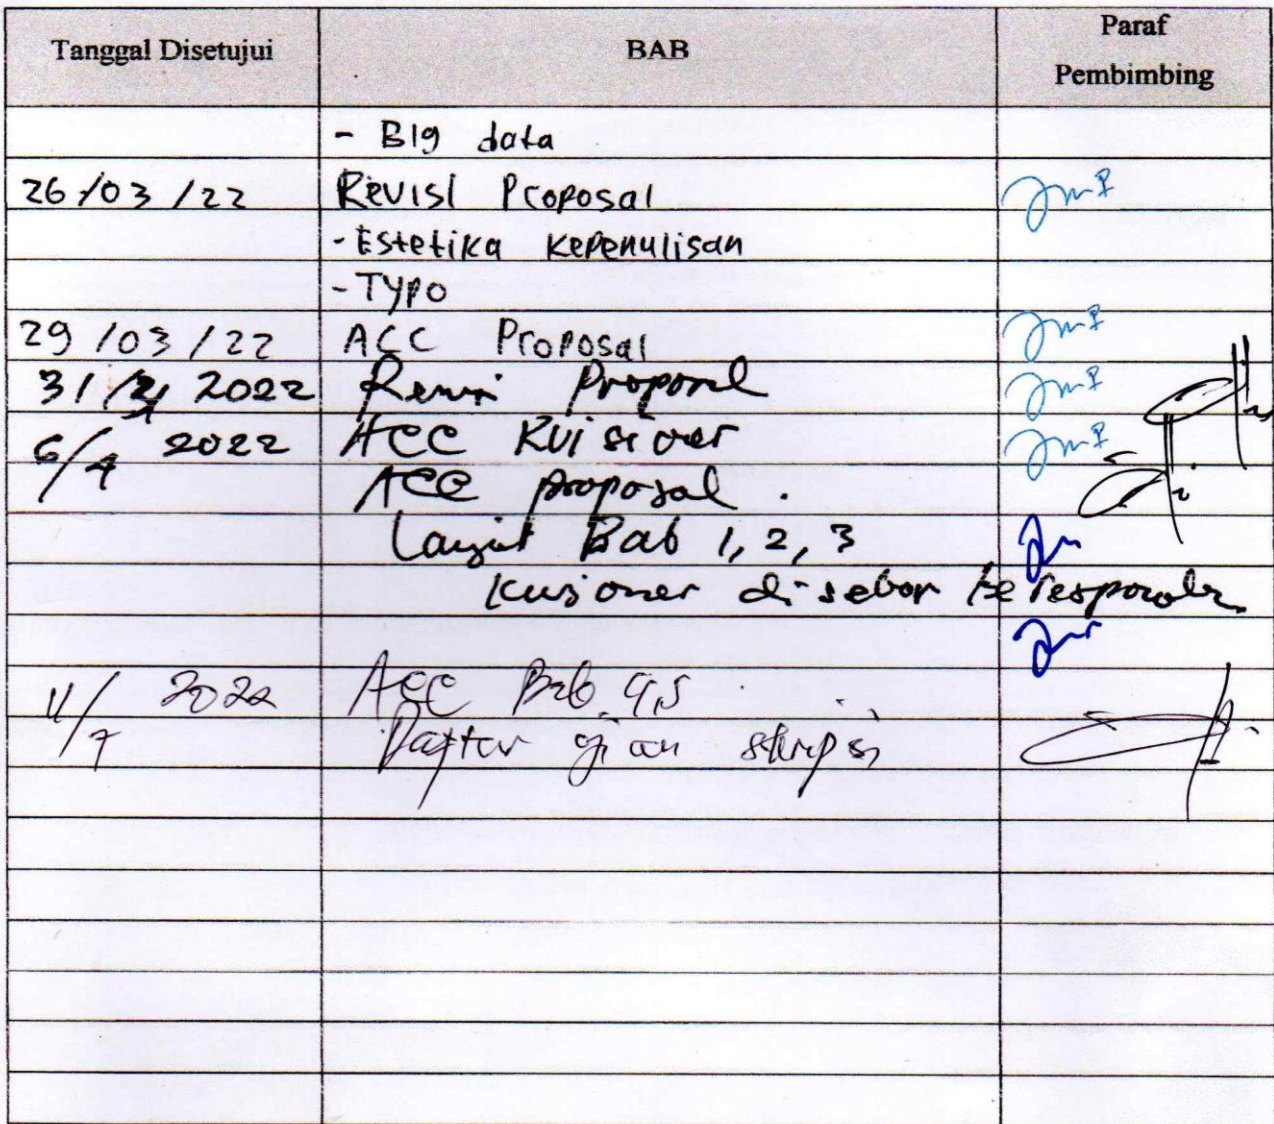 Tanggal Disetujui BAB Paraf Pembimbing
- Big data
26/03/22 Revisi Proposal
- Estetika kepenulisan
- Typo
29/03/22 ACC Proposal
31/3 2022 Revisi Proposal
6/4 2022 ACC Kuisioner
ACC proposal.
Lanjut Bab 1, 2, 3
Kusioner di sebar ke responden
11/7 2022 ACC Bab 4,5
Daftar ujian skripsi